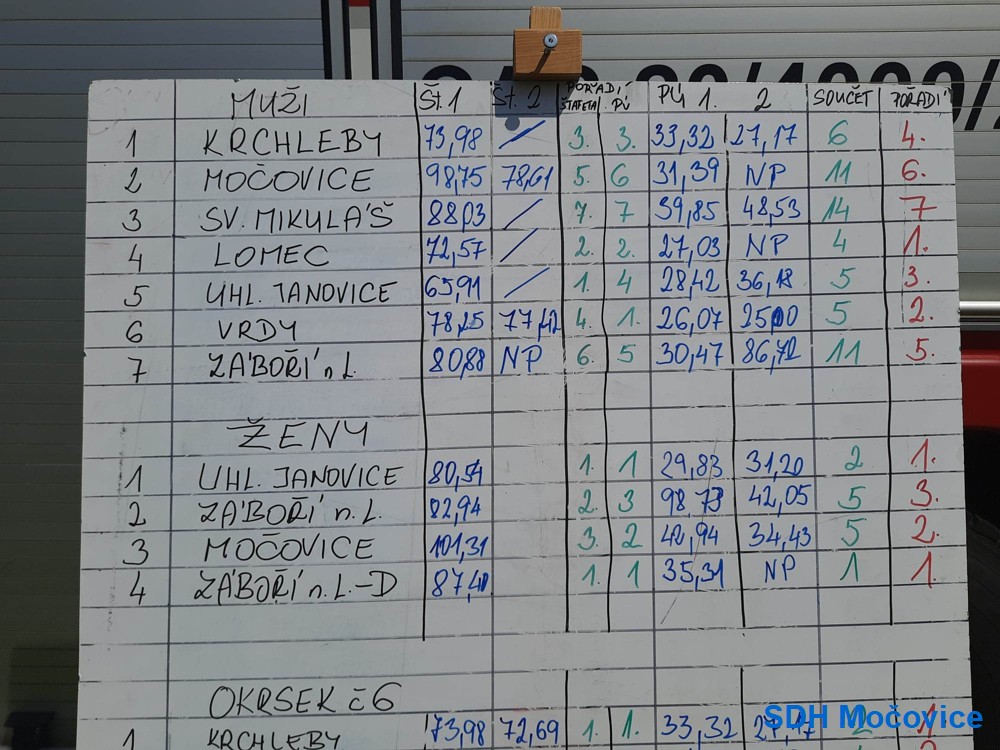 MUŽI ŠT. 1 ŠT. 2 POŘADÍ ŠTAFETA PÚ PÚ 1. 2 SOUČET POŘADÍ
1 KRCHLEBY 73,98 / 3. 3. 33,32 27,17 6 4.
2 MOČOVICE 98,75 78,61 5. 6 31,39 NP 11 6.
3 SV. MIKULÁŠ 88,03 / 7. 7 39,85 48,53 14 7
4 LOMEC 72,57 / 2. 2. 27,03 NP 4 1.
5 UHL. JANOVICE 65,91 / 1. 4 28,42 36,18 5 3.
6 VRDY 78,25 77,42 4. 1. 26,07 25,00 5 2.
7 ZÁBOŘÍ n L. 80,88 NP 6. 5 30,47 86,72 11 5.
ŽENY
1 UHL. JANOVICE 80,54 1. 1 29,83 31,20 2 1.
2 ZÁBOŘÍ n. L. 82,94 2. 3 98,73 42,05 5 3.
3 MOČOVICE 101,31 3. 2 42,94 34,43 5 2.
4 ZÁBOŘÍ n. L.-D 87,40 1. 1 35,31 NP 1 1
OKRSEK č 6
1 KRCHLEBY 73,98 72,69 1. 1. 33,32 27,17 2
SDH Močovice